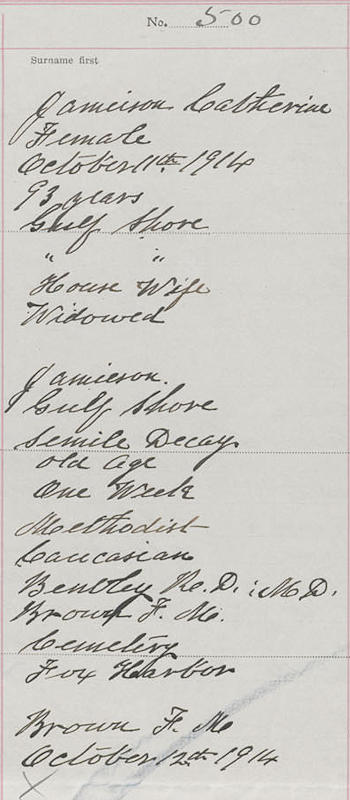 No. 500
Surname first
Jamieson Catherine
Female
October 11th 1914
93 years
Gulf Shore
" "
House Wife
Widowed
Jamieson.
Gulf Shore
Senile Decay
Old Age
One Week
Methodist
Caucasian
Bentley R. D. : M D.
Brown F. M.
Cemetery
Fox Harbor
Brown F. M
October 12th 1914
X